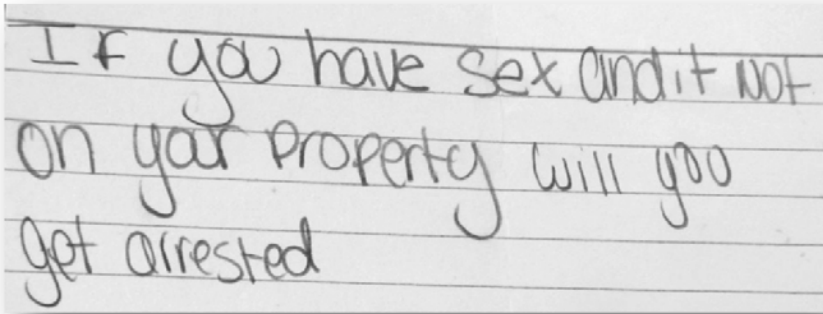 If you have sex and it not
on your property will you
get arrested